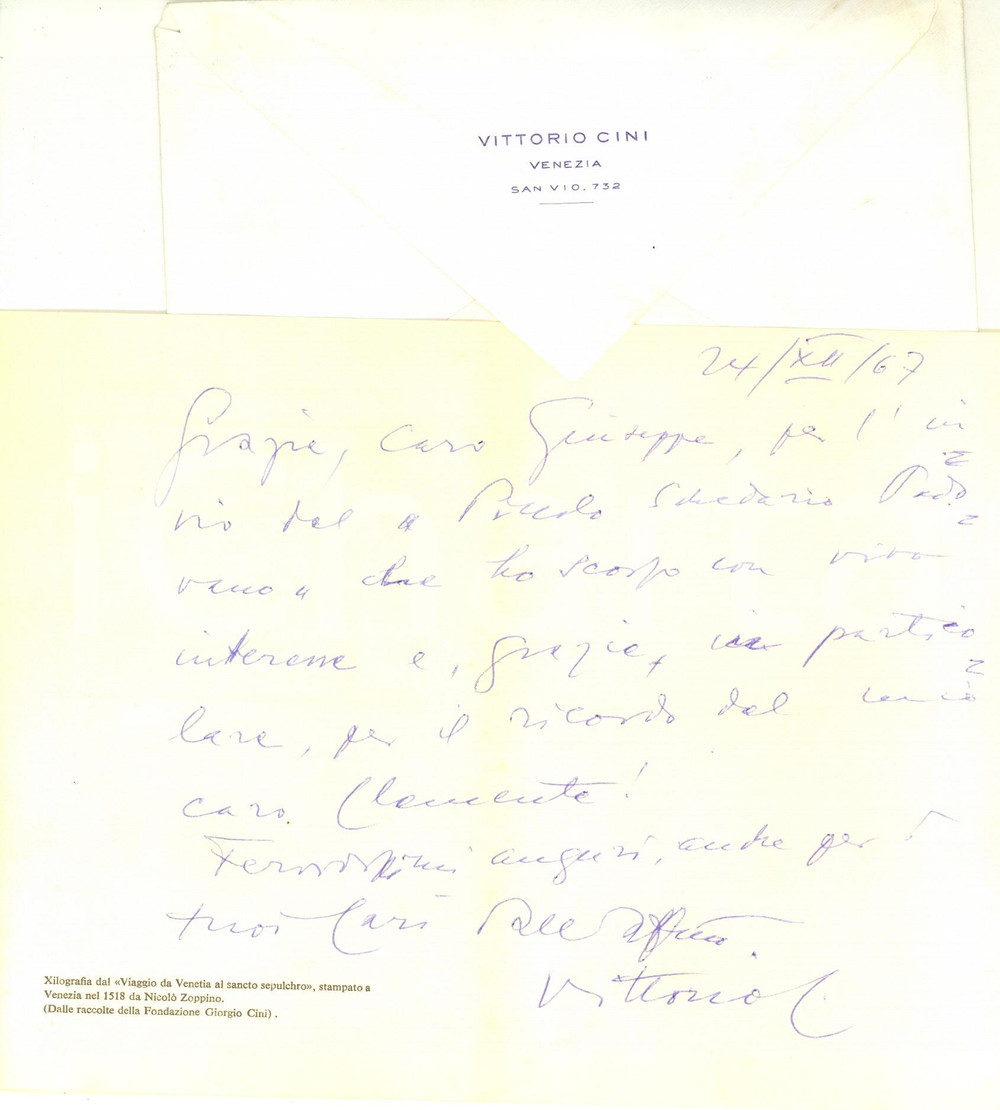 VITTORIO CINI
VENEZIA
SAN VIO, 732
24/XII/67
Grazie, caro Giuseppe, per l'in=
vio del "Piccolo Schedario Pado=
vano" che ho scorso con vivo
interesse e, grazie, in partico=
lare, per il ricordo del mio
caro Clemente!
Fervidissimi auguri, anche per i
tuoi Cari dall'Aff.mo
Vittorio C.
Xilografia dal «Viaggio da Venetia al sancto sepulchro», stampato a
Venezia nel 1518 da Nicolò Zoppino.
(Dalle raccolte della Fondazione Giorgio Cini).